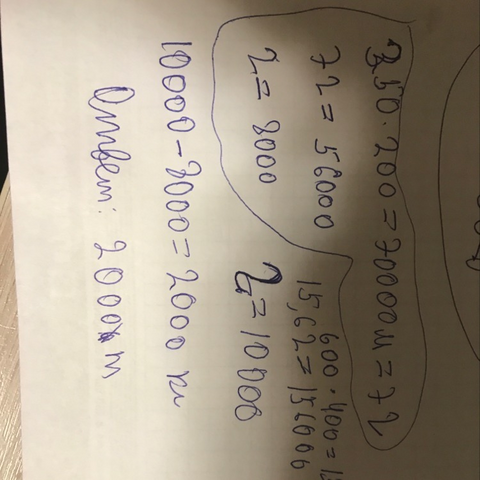 350 · 200 = 70000 м = 7 2
72 = 56000
2 = 8000
600 · 400 =
15,62 = 156000
2 = 10000
10000 - 8000 = 2000 м
Ответ: 2000 м